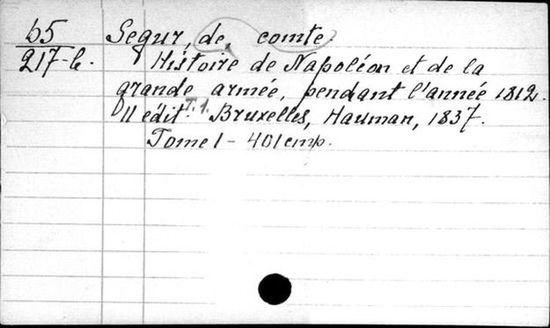 б5
217-б.
Segur, de, comte.
Histoire de Napoléon et de la
grande armée, pendant l'année 1812.
11 édit. T.1. Bruxelles, Hauman, 1837.
Tome 1 - 401 стр.